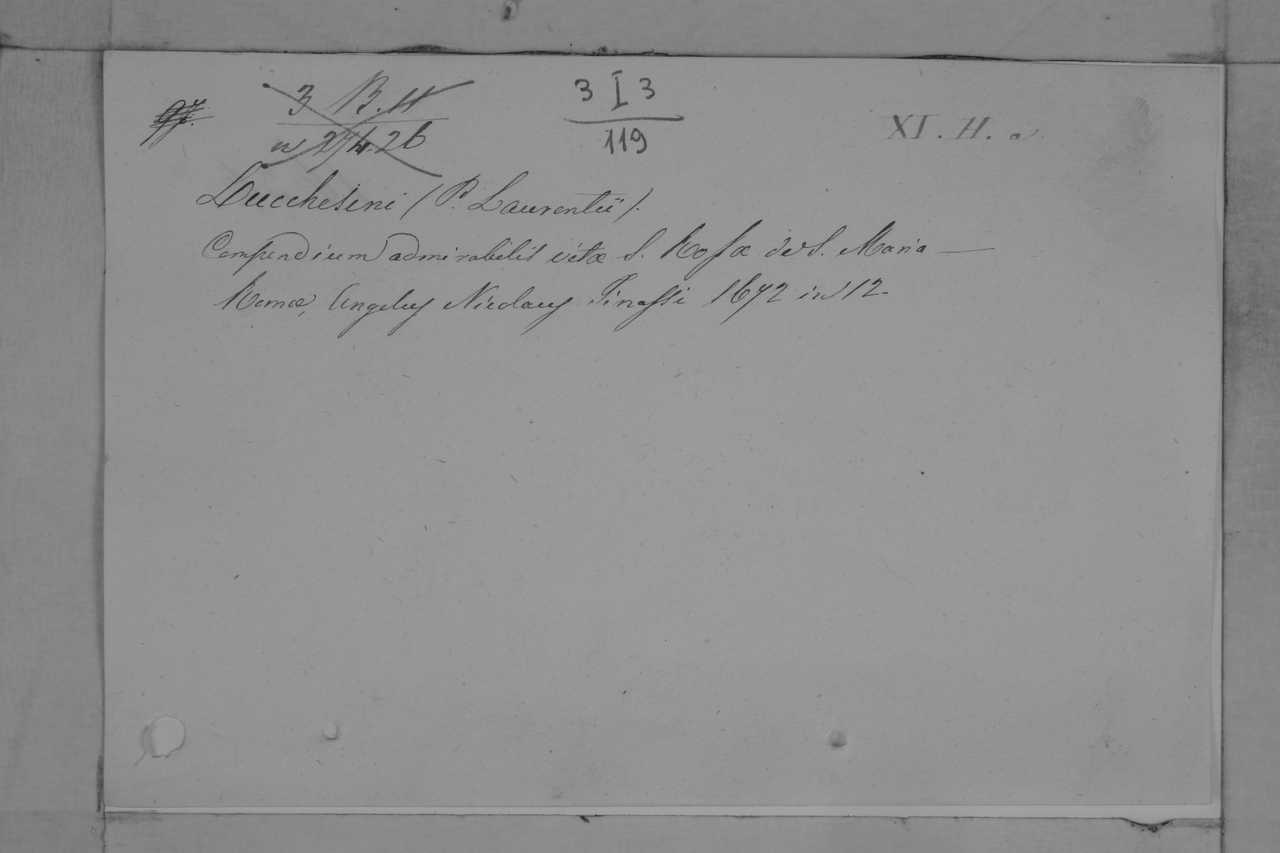 3 B. H
3 I 3
119
XI. H. a
Lucchesini (P. Laurentii).
Compendium admirabilis vitæ S. Rosæ de S. Maria —
Romæ, Angelus Nicolaus Tinassi 1672 in 12.